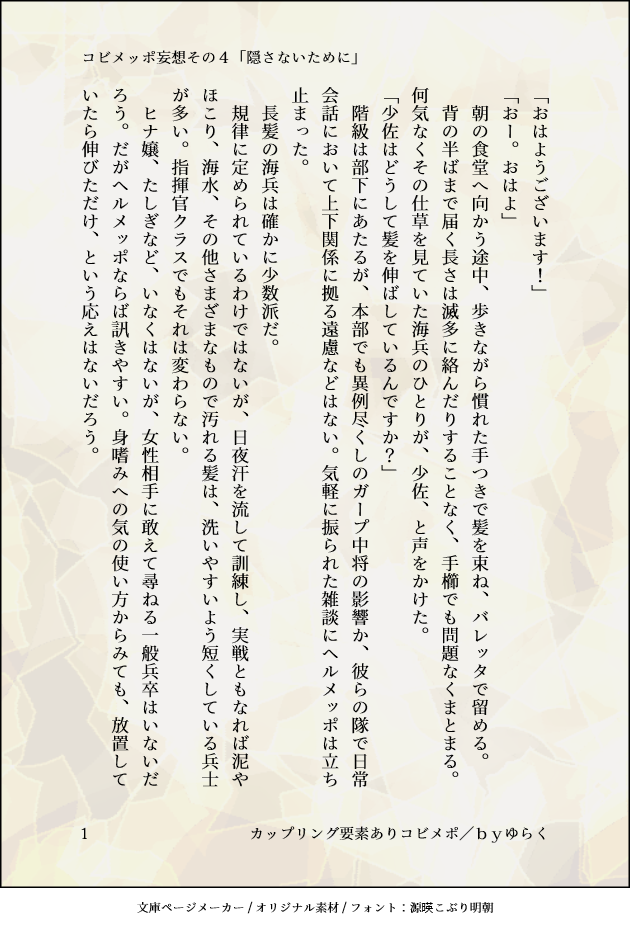 コビメッポ妄想その４「隠さないために」
「おはようございます！」
「おー。おはよ」
　朝の食堂へ向かう途中、歩きながら慣れた手つきで髪を束ね、バレッタで留める。
　背の半ばまで届く長さは滅多に絡んだりすることなく、手櫛でも問題なくまとまる。
何気なくその仕草を見ていた海兵のひとりが、少佐、と声をかけた。
「少佐はどうして髪を伸ばしているんですか？」
　階級は部下にあたるが、本部でも異例尽くしのガープ中将の影響か、彼らの隊で日常
会話において上下関係に拠る遠慮などはない。気軽に振られた雑談にヘルメッポは立ち
止まった。
　長髪の海兵は確かに少数派だ。
　規律に定められているわけではないが、日夜汗を流して訓練し、実戦ともなれば泥や
ほこり、海水、その他さまざまなもので汚れる髪は、洗いやすいよう短くしている兵士
が多い。指揮官クラスでもそれは変わらない。
　ヒナ嬢、たしぎなど、いなくはないが、女性相手に敢えて尋ねる一般兵卒はいないだ
ろう。だがヘルメッポならば訊きやすい。身嗜みへの気の使い方からみても、放置して
いたら伸びただけ、という応えはないだろう。
1
カップリング要素ありコビメポ／ｂｙゆらく
文庫ページメーカー / オリジナル素材 / フォント：源暎こぶり明朝